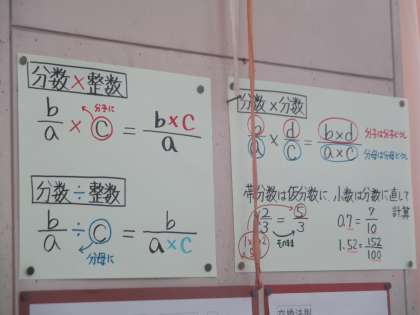 分数×整数
分子に
b/a × c = b×c/a
分数÷整数
b/a ÷ c = b/a×c
分母に
分数×分数
b/a × d/c = b×d/a×c
分子は分子どうし
分母は分母どうし
帯分数は仮分数に、小数は分数に直して
計算
1 2/3 = 5/3
そのまま
0.7 = 7/10
1.52 = 152/100
交換法則